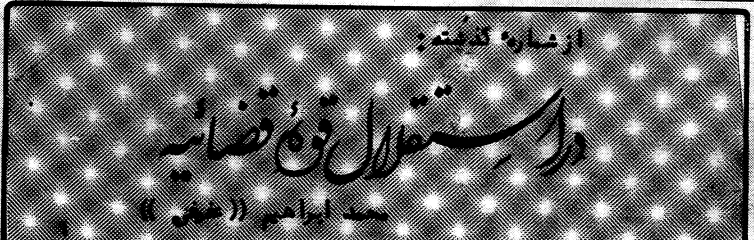 از شمارهٔ گذشته:
در استقلال قوهٔ قضائیه
محمد ابراهیم ((عفیفی))